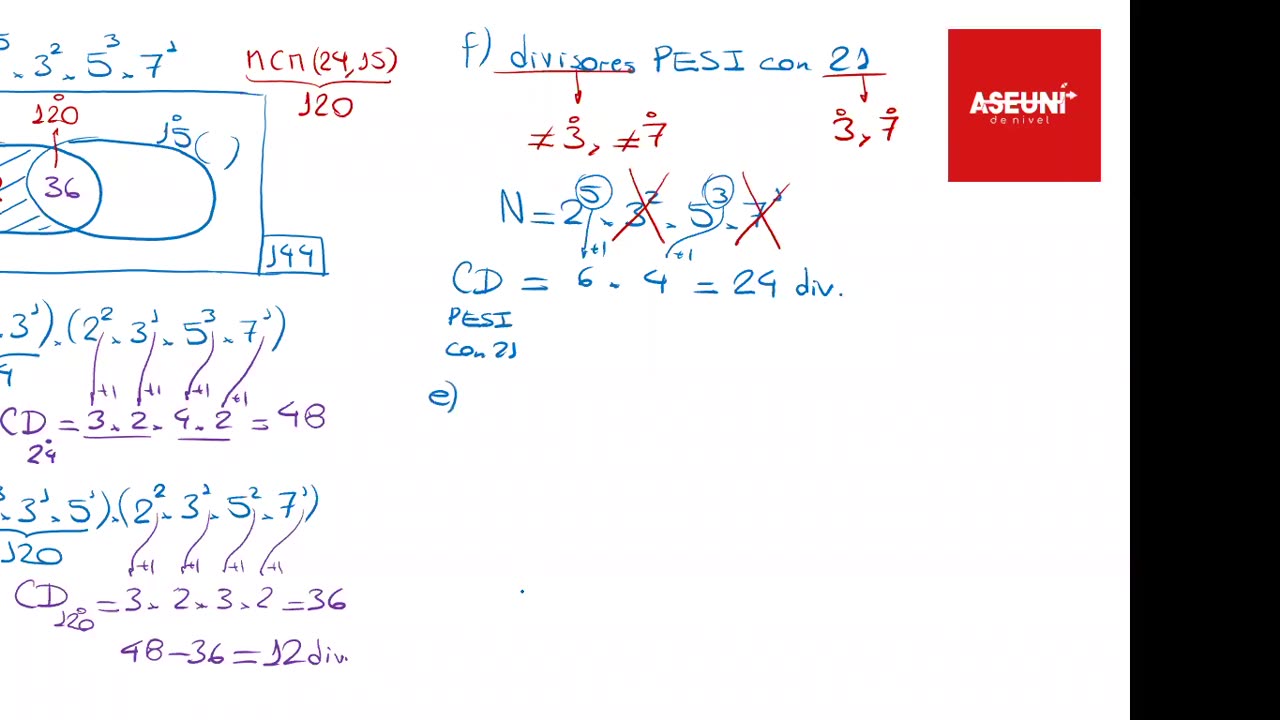 5 . 3² . 5³ . 7¹
MCM(24,15)
120
120°
15° ( )
36
144
.3¹).(2² . 3¹ . 5³ . 7¹)
+1 +1 +1 +1
CD = 3 . 2 . 4 . 2 = 48
24°
. 3¹ . 5¹).(2² . 3¹ . 5² . 7¹)
120
+1 +1 +1 +1
CD = 3 . 2 . 3 . 2 = 36
120°
48 - 36 = 12 div.
f) divisores PESI con 21
≠ 3°, ≠ 7°
3°, 7°
N = 2⁵ . 3² . 5³ . 7¹
+1 +1
CD = 6 . 4 = 24 div.
PESI
con 21
e)
ASEUNI
de nivel